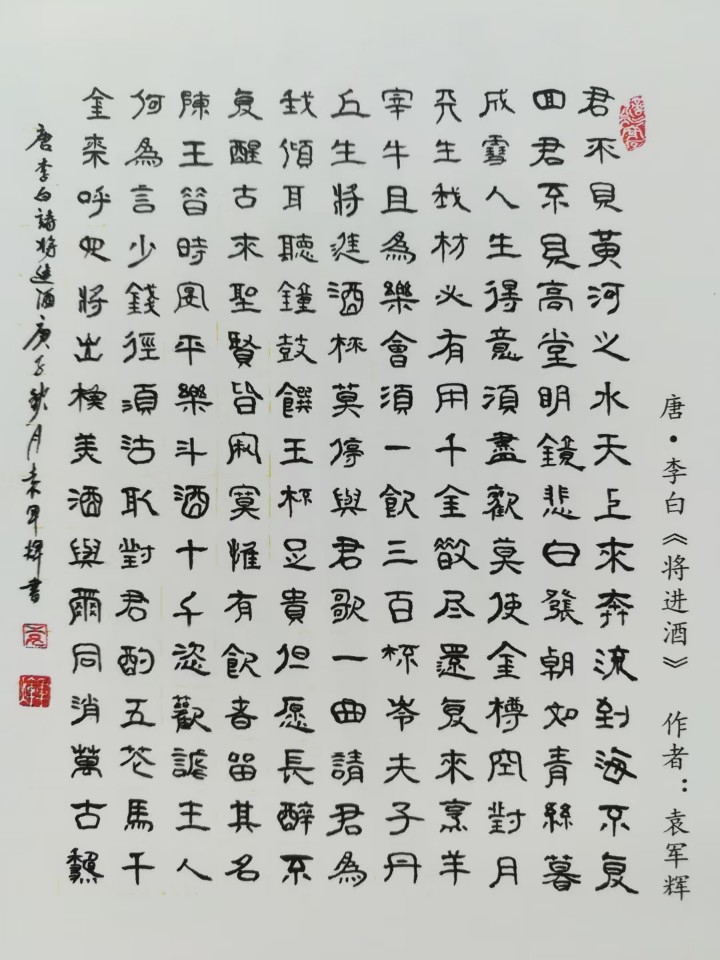 唐·李白《将进酒》 作者：袁军辉
君不見黃河之水天上來奔流到海不复
回君不見高堂明鏡悲白發朝如青絲暮
成雪人生得意須盡歡莫使金樽空對月
天生我材必有用千金散尽還复來烹羊
宰牛且為樂會須一飲三百杯岑夫子丹
丘生將進酒杯莫停與君歌一曲請君為
我傾耳聽鐘鼓饌玉杯足貴但愿長醉不
复醒古來聖賢皆寂寞惟有飲者留其名
陳王昔時宴平樂斗酒十千恣歡謔主人
何為言少錢徑須沽取對君酌五花馬千
金裘呼兒將出換美酒與爾同消萬古愁
唐李白詩將進酒庚子秋月袁军輝書